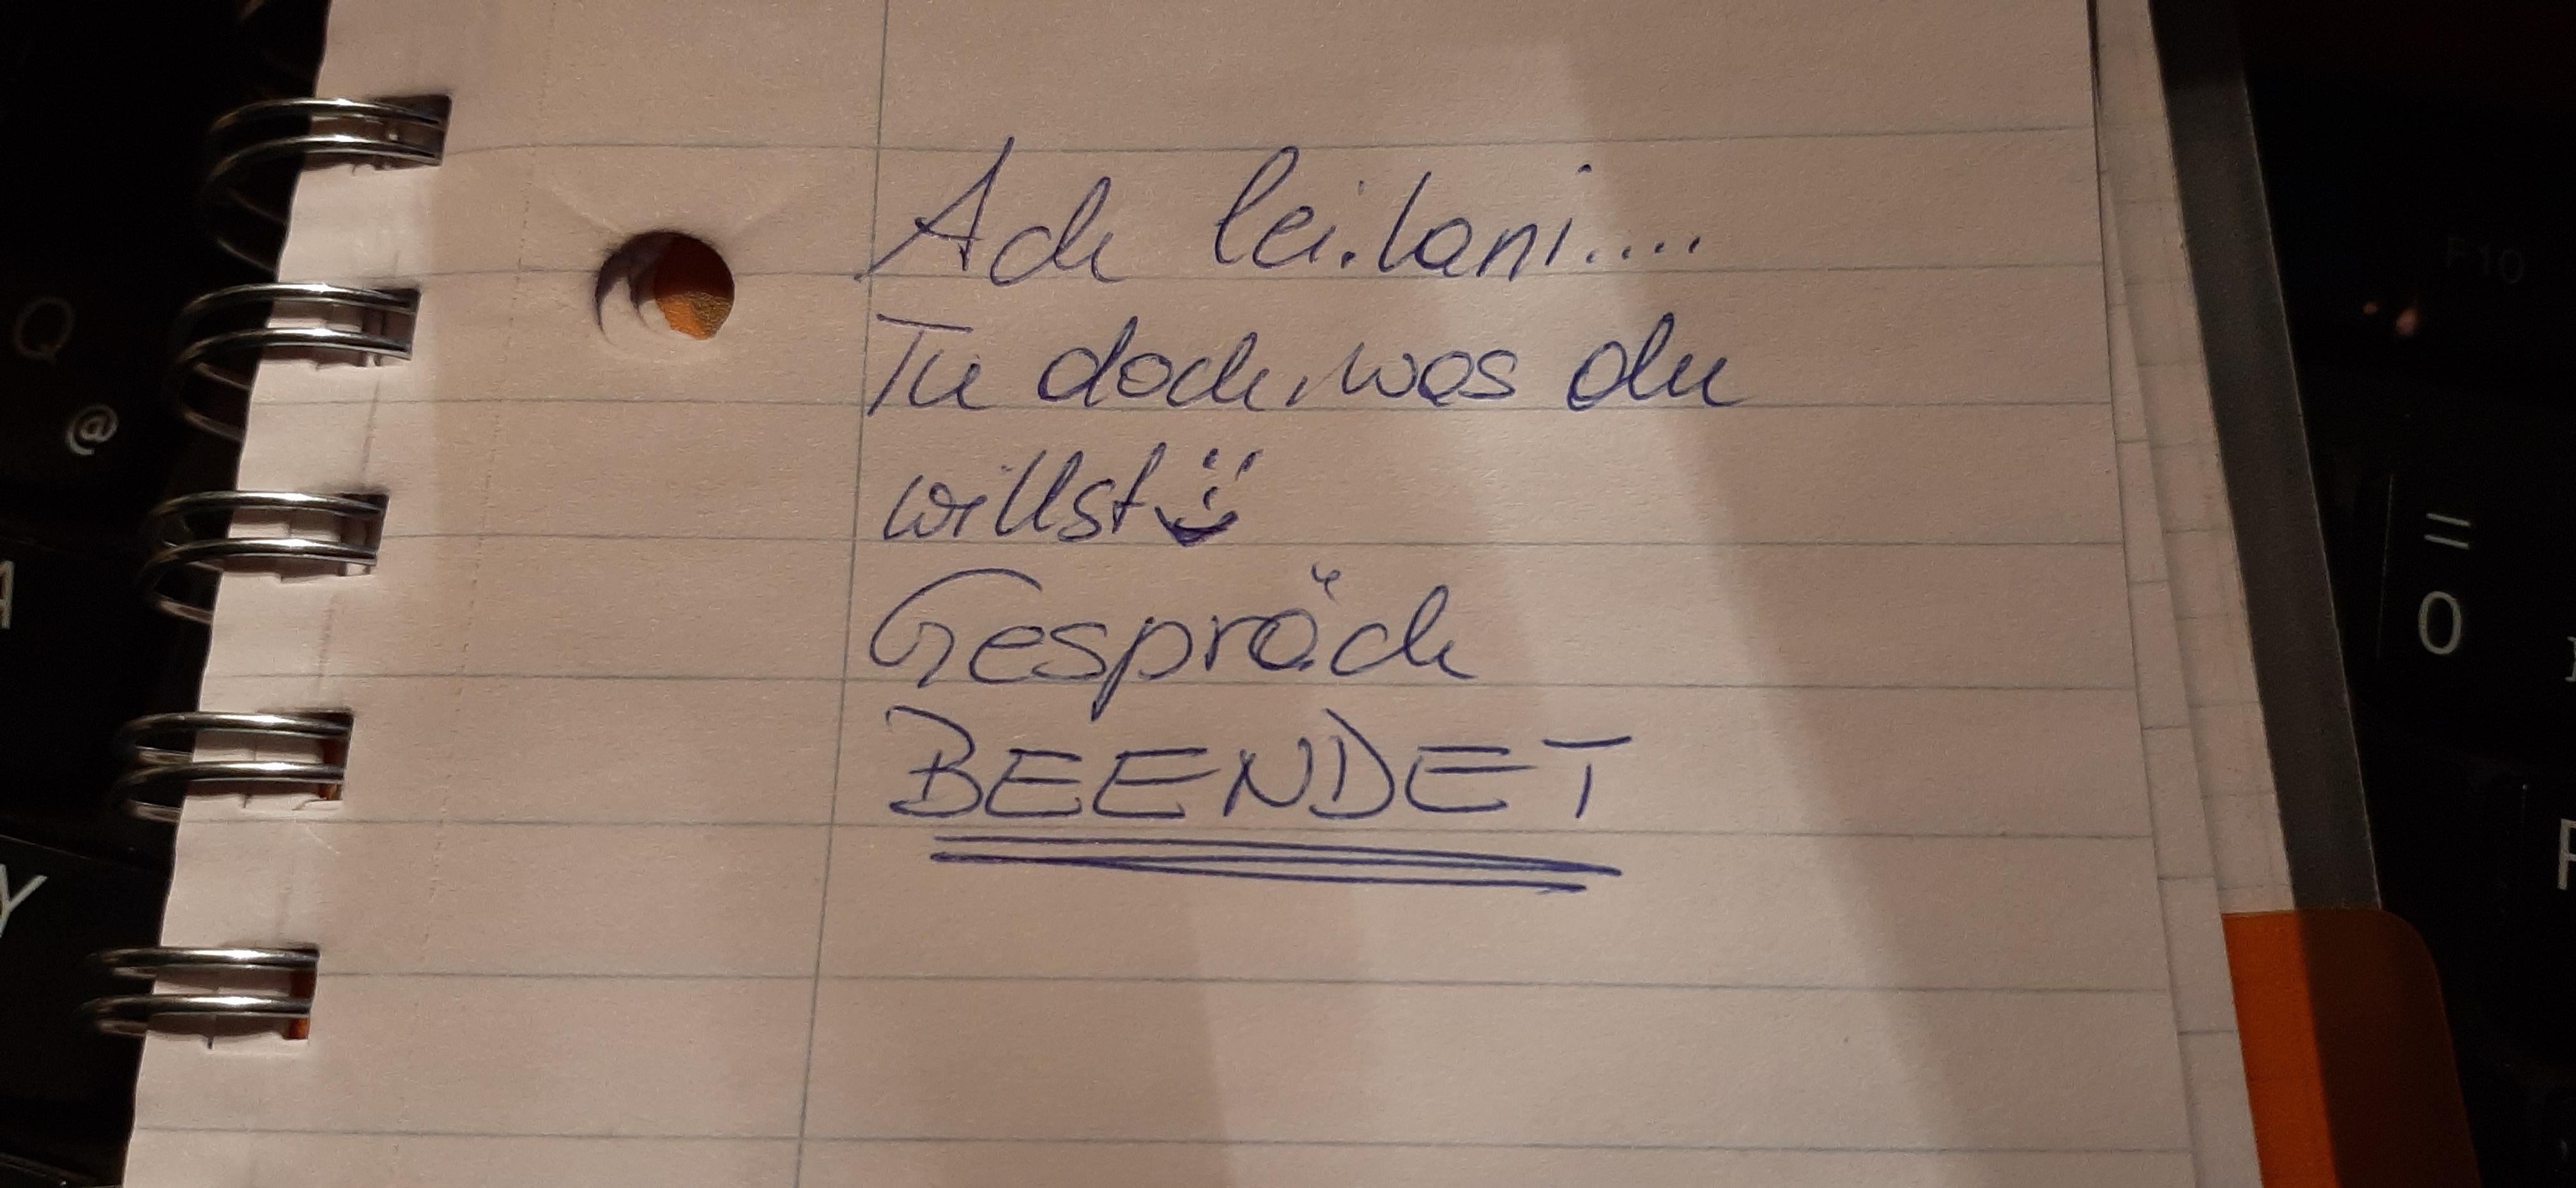 Ach lei.lani....
Tu doch, was du
willst
Gespräch
BEENDET
Q
@
A
Y
F10
=
0
P